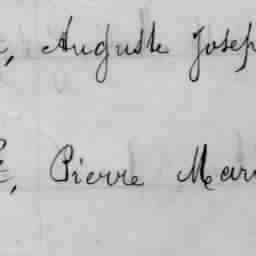 , Auguste Josep
, Pierre Mar